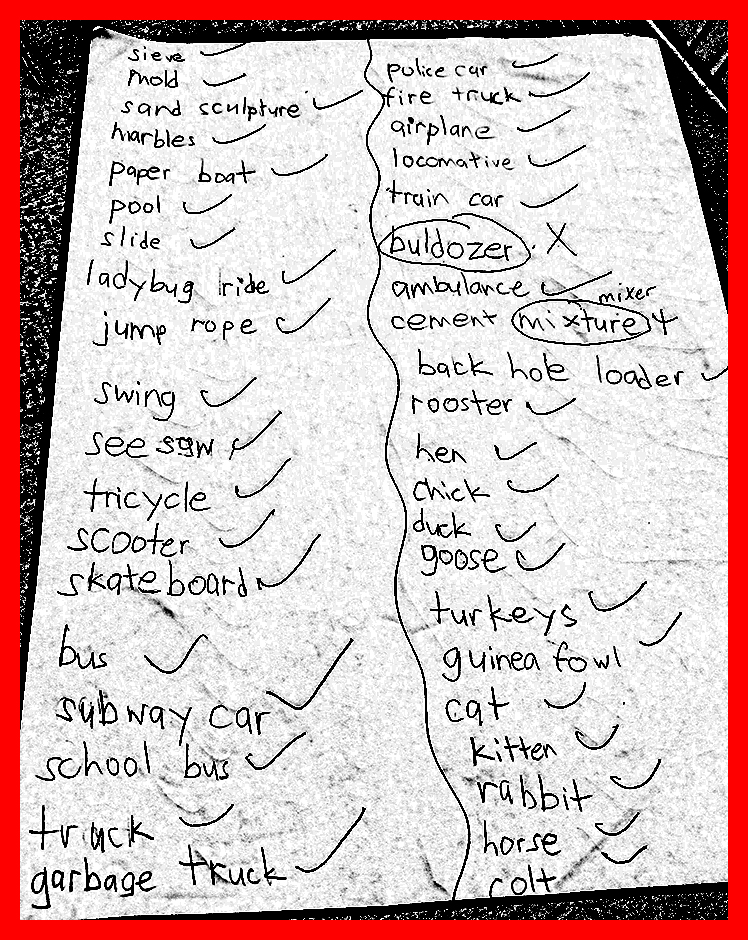 sieve
mold
sand sculpture
marbles
paper boat
pool
slide
ladybug ride
jump rope
swing
see saw
tricycle
scooter
skateboard
bus
subway car
school bus
truck
garbage truck
police car
fire truck
airplane
locomative
train car
buldozer. X
ambulance
mixer
cement mixture
back hole loader
rooster
hen
chick
duck
goose
turkeys
guinea fowl
cat
kitten
rabbit
horse
colt